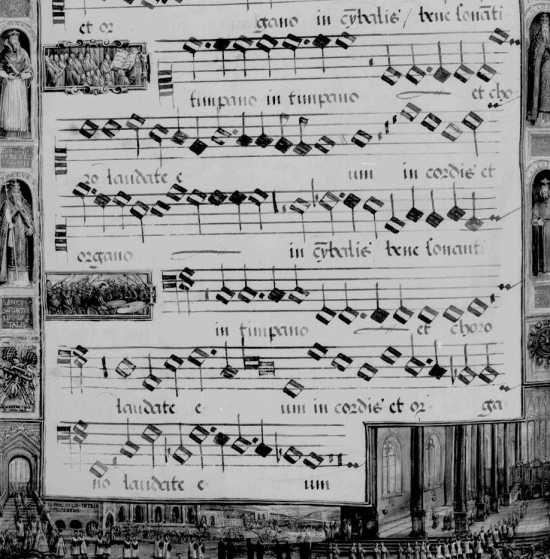 et or gano in cÿbalis / bene sonāti
timpano in timpano et cho
ro laudate e um in cordis et
organo in cÿbalis bene sonanti
in timpano et choro
laudate e um in cordis et or ga
no laudate e um